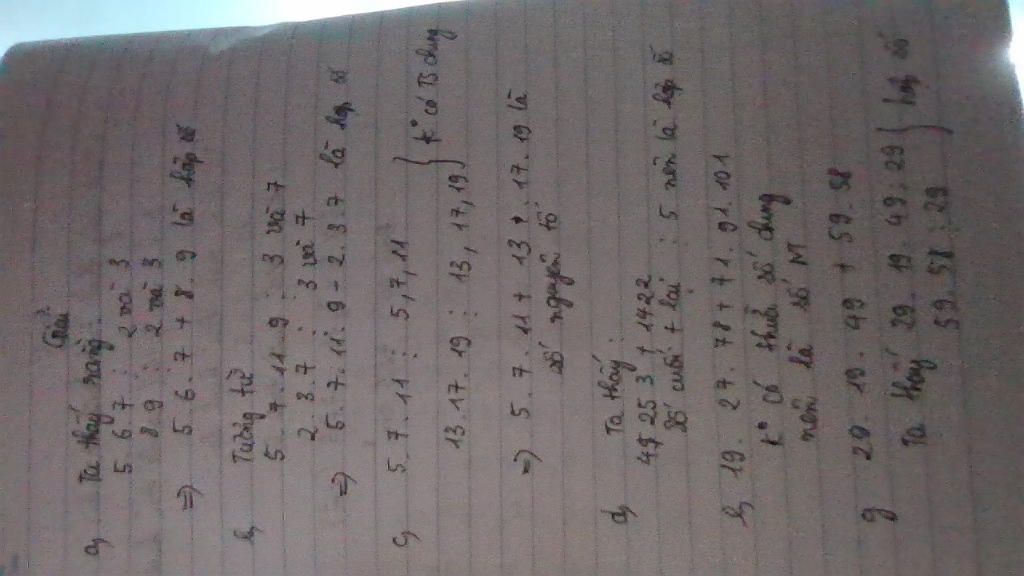 Giải:
a, Ta thấy rằng:
5. 6. 7 ⋮ 2 và 3
8. 9 ⋮ 2 và 3
=> 5. 6. 7 + 8. 9 là hợp số
b, Tương tự
5. 7. 11. 9 ⋮ 3 và 7
2. 3. 7 ⋮ 3 và 7
=> 5. 7. 11. 9 - 2. 3. 7 là hợp số
c, 5. 7. 11 ⋮ 5, 7, 11
13. 17. 19 ⋮ 13, 17, 19 } K° có TS chung
=> 5. 7. 11 + 13. 17. 19 là
số nguyên tố
d, Ta thấy:
4253 + 1422
Số cuối + lại ⋮ 5 nên là hợp số
e, 19. 27. 78 + 71. 91. 101
K° có thừa số chung
nên là số NT
g 29. 19. 49 + 59. 58
Ta thấy 29. 19. 49 ⋮ 29 } hợp số
59. 58 ⋮ 29